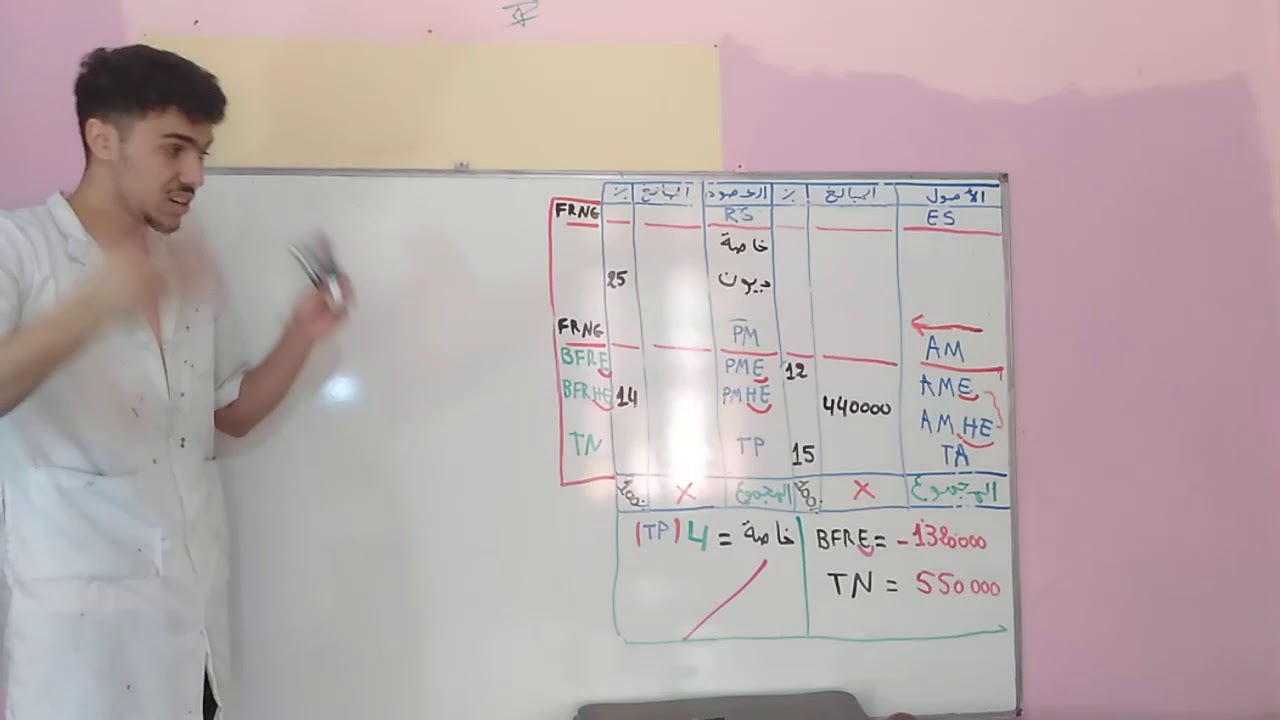 الأصول المبالغ % الخصوم المبالغ %
ES RS FRNG
خاصة
ديون 25
AM PM FRNG
12 PME BFRE
AME
440000 PMHE 14 BFRHE
AMHE
TA 15 TP TN
المجموع X 100% المجموع X 100%
BFRE = -1380000
TN = 550000
خاصة = 4 (TP)